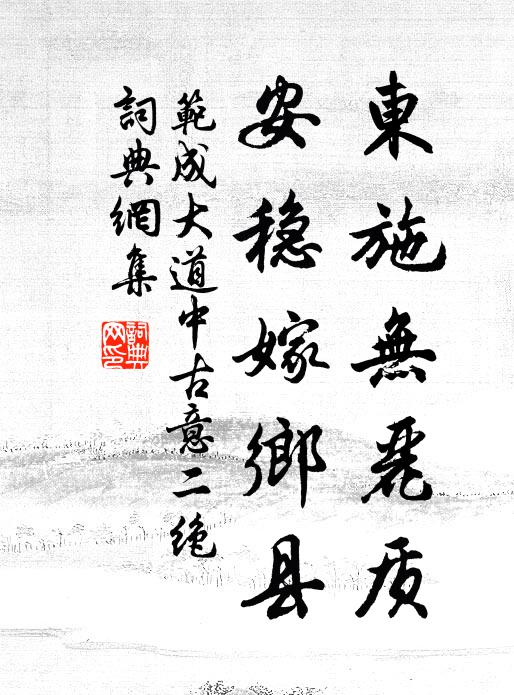 東施無麗质
安穏嫁鄉县
範成大道中古意二绝
詞典網集
詞典网印